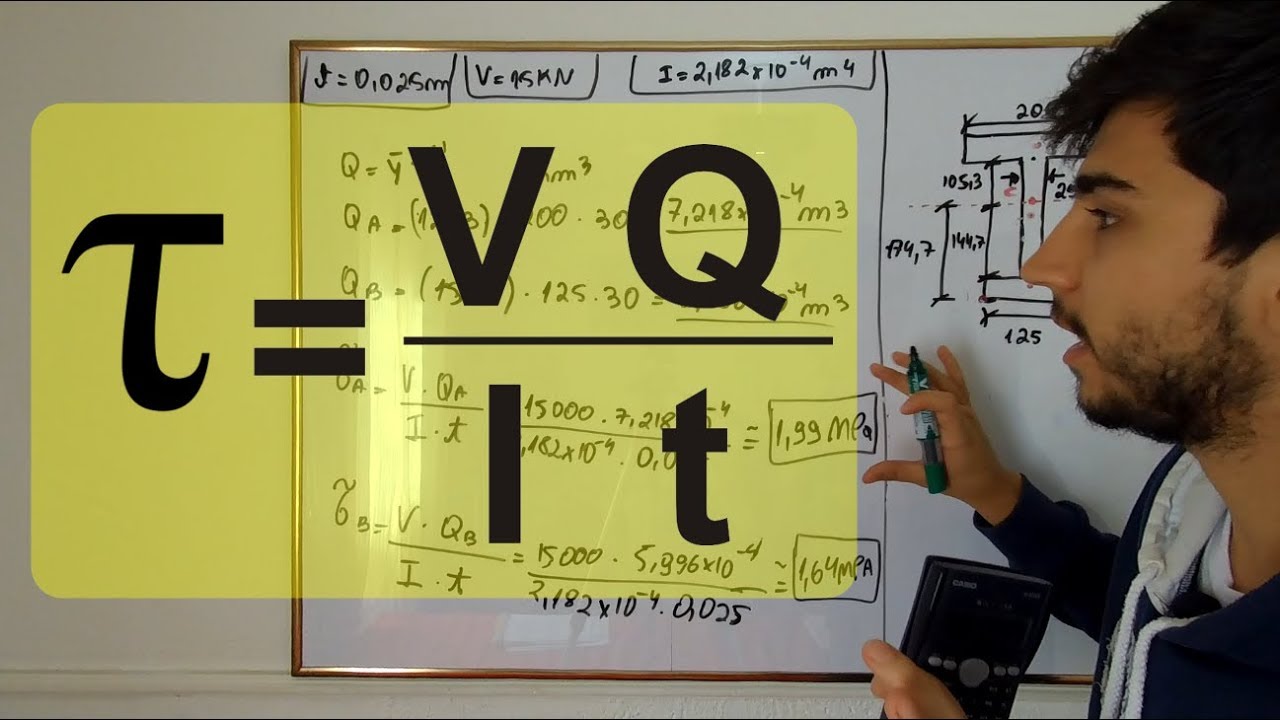 t = 0,025m V = 15KN I = 2,182 x 10⁻⁴ m⁴
Q = ȳ
m³
Q_A = ( ) 200 . 30 7,218 x ⁻⁴ m³
Q_B = ( ) . 125 . 30 = ⁻⁴ m³
τ = V Q / I t
_A = V . Q_A / I . t 15000 . 7,218 ⁻⁴ / ,182x10⁻⁴ . 0,0 ≅ 1,99 MPa
τ_B = V . Q_B / I . t = 15000 . 5,996x10⁻⁴ / 2,182x10⁻⁴ . 0,025 ≅ 1,64 MPA
20
105,3
25
174,7 144,7
125
CASIO